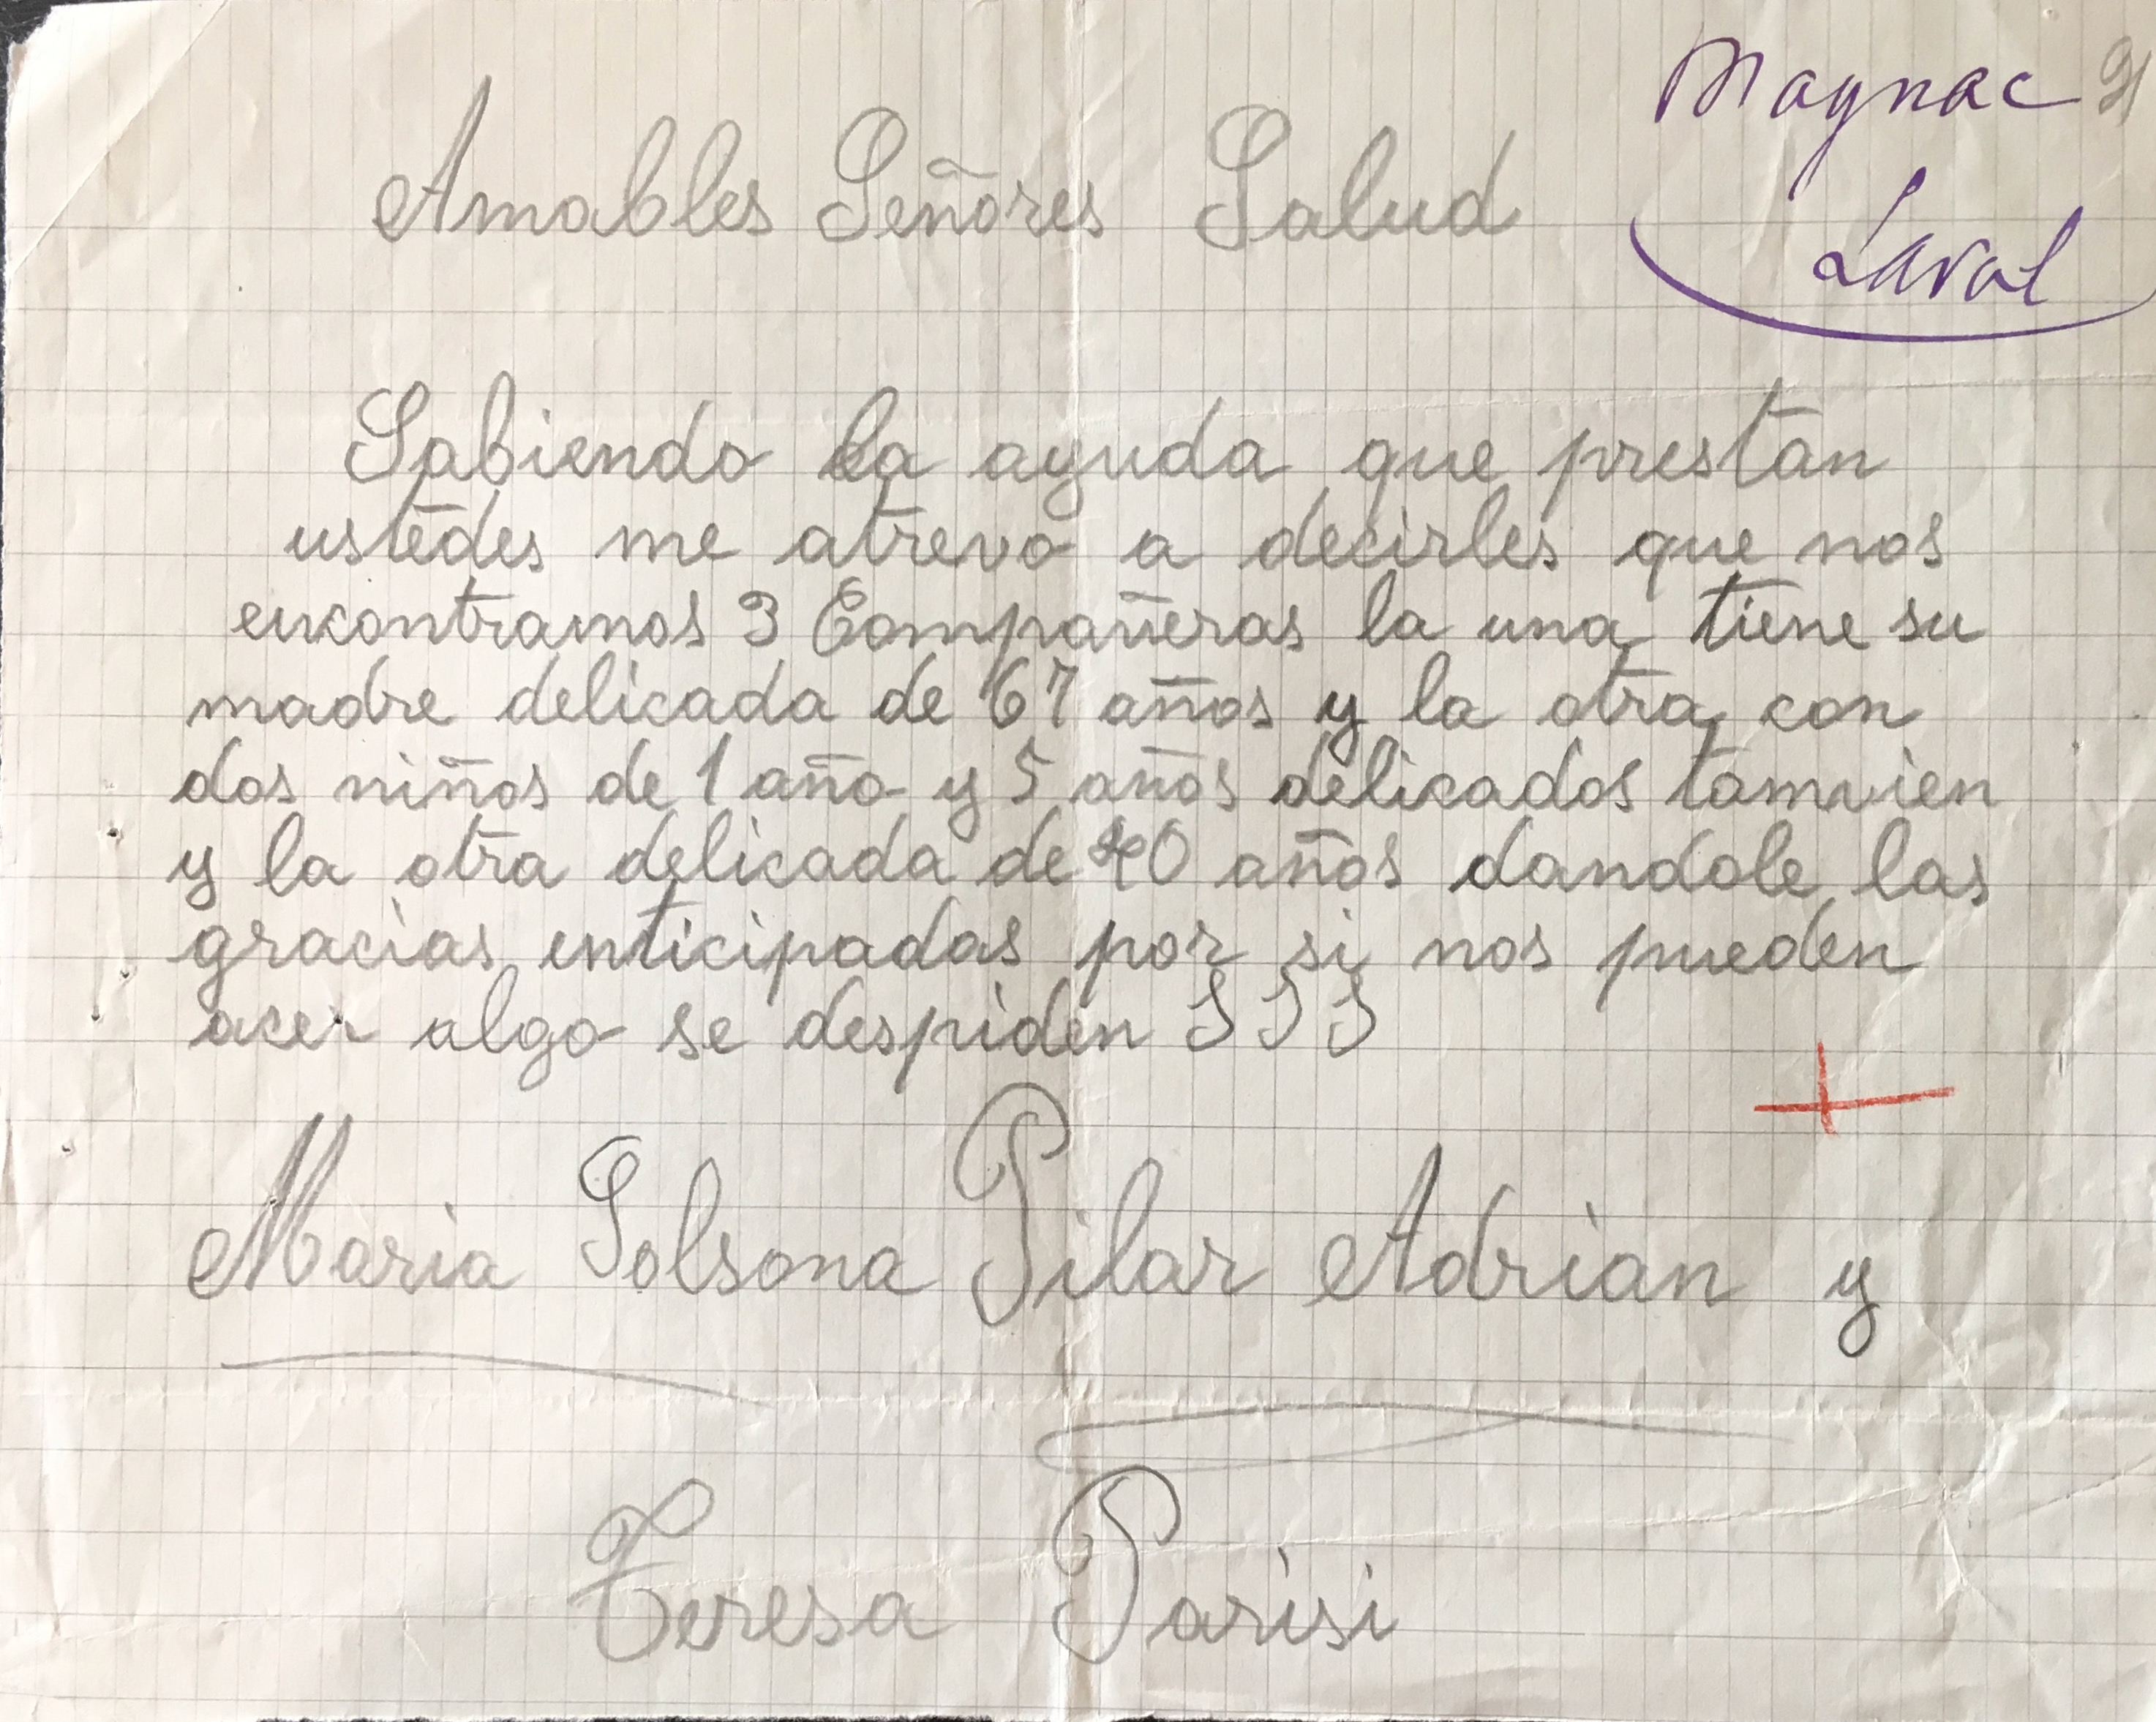 Magnac 91
Laval
Amables Señores Salud
Sabiendo la ayuda que prestan
ustedes me atrevo a decirles que nos
encontramos 3 Compañeras la una tiene su
madre delicada de 67 años y la otra con
dos niños de 1 año y 5 años delicados tamvien
y la otra delicada de 40 años dandole las
gracias enticipadas por si nos pueden
acer algo se despiden SSS
Maria Solsona Pilar Adrian y
Teresa Parisi